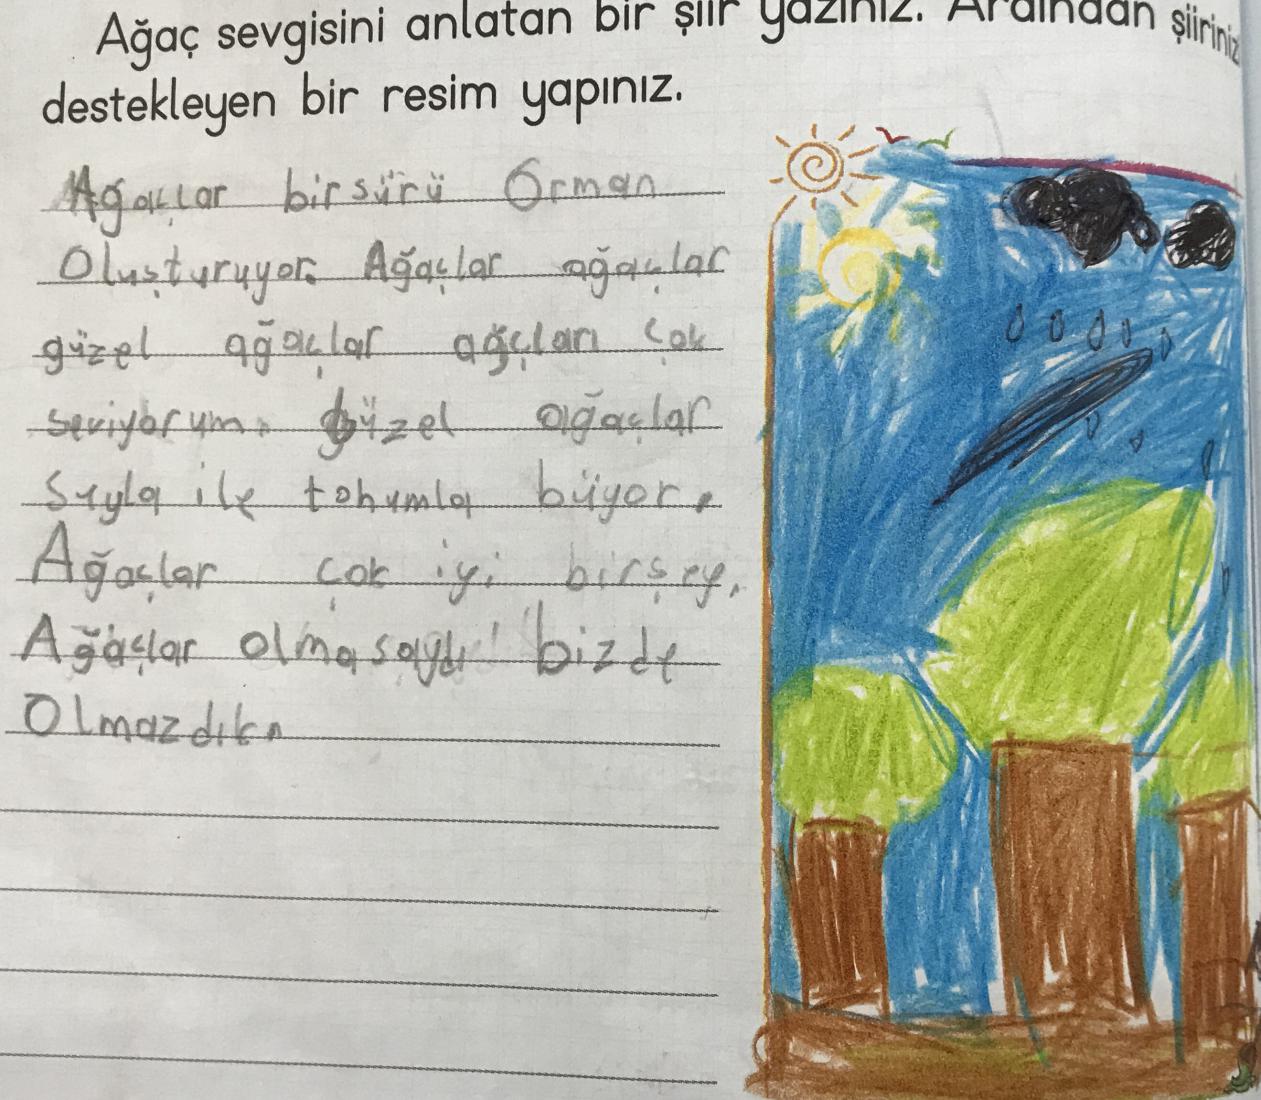 Ağaç sevgisini anlatan bir şiir yazınız. Ardından şiiriniz
destekleyen bir resim yapınız.
Ağaçlar birsürü Orman
Oluşturuyor. Ağaçlar ağaçlar
güzel ağaçlar ağçları çok
seviyorum. güzel ağaçlar
Suyla ile tohumla büyor.
Ağaçlar çok iyi birşey.
Ağaçlar olmasaydı bizde
Olmazdık.